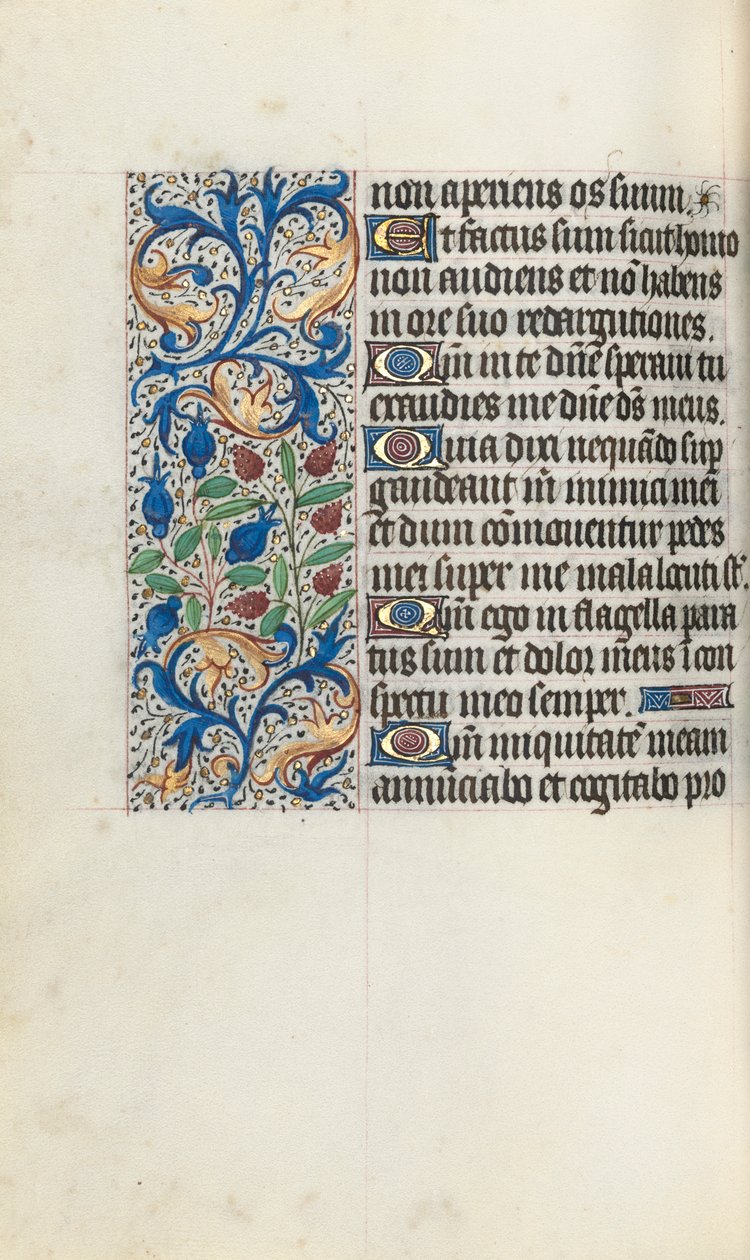 non aperiens os suum
Et factus sum sicut homo
non audiens et nõ habens
in ore suo redargutiones.
Qm̃ in te dñe speraui tu
exaudies me dñe ds̃ meus.
Quia dixi nequãdo sup
gaudeant m̃ inimici mei
et dum cõmouentur pedes
mei super me mala locuti st̃.
Qm̃ ego in flagella para
tus sum et dolor meus ĩ con
spectu meo semper.
Qm̃ iniquitatẽ meam
annũciabo et cogitabo pro